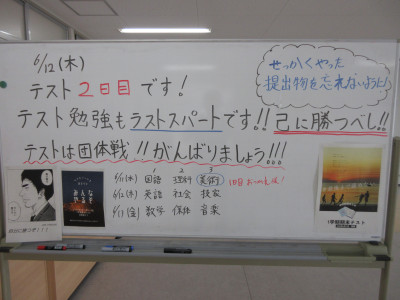 6/12(木)
テスト2日目です!
せっかくやった
提出物を忘れないように!
テスト勉強もラストスパートです!! 己に勝つべし!!
テストは団体戦!! がんばりましょう!!!
1 2 3
6/11(水) 国語 理科 美術
6/12(木) 英語 社会 技家
6/13(金) 数学 保体 音楽
みんな
やるぞ